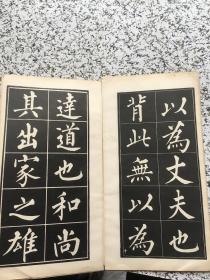 以為丈夫也
背此無以為
達道也和尚
其出家之雄